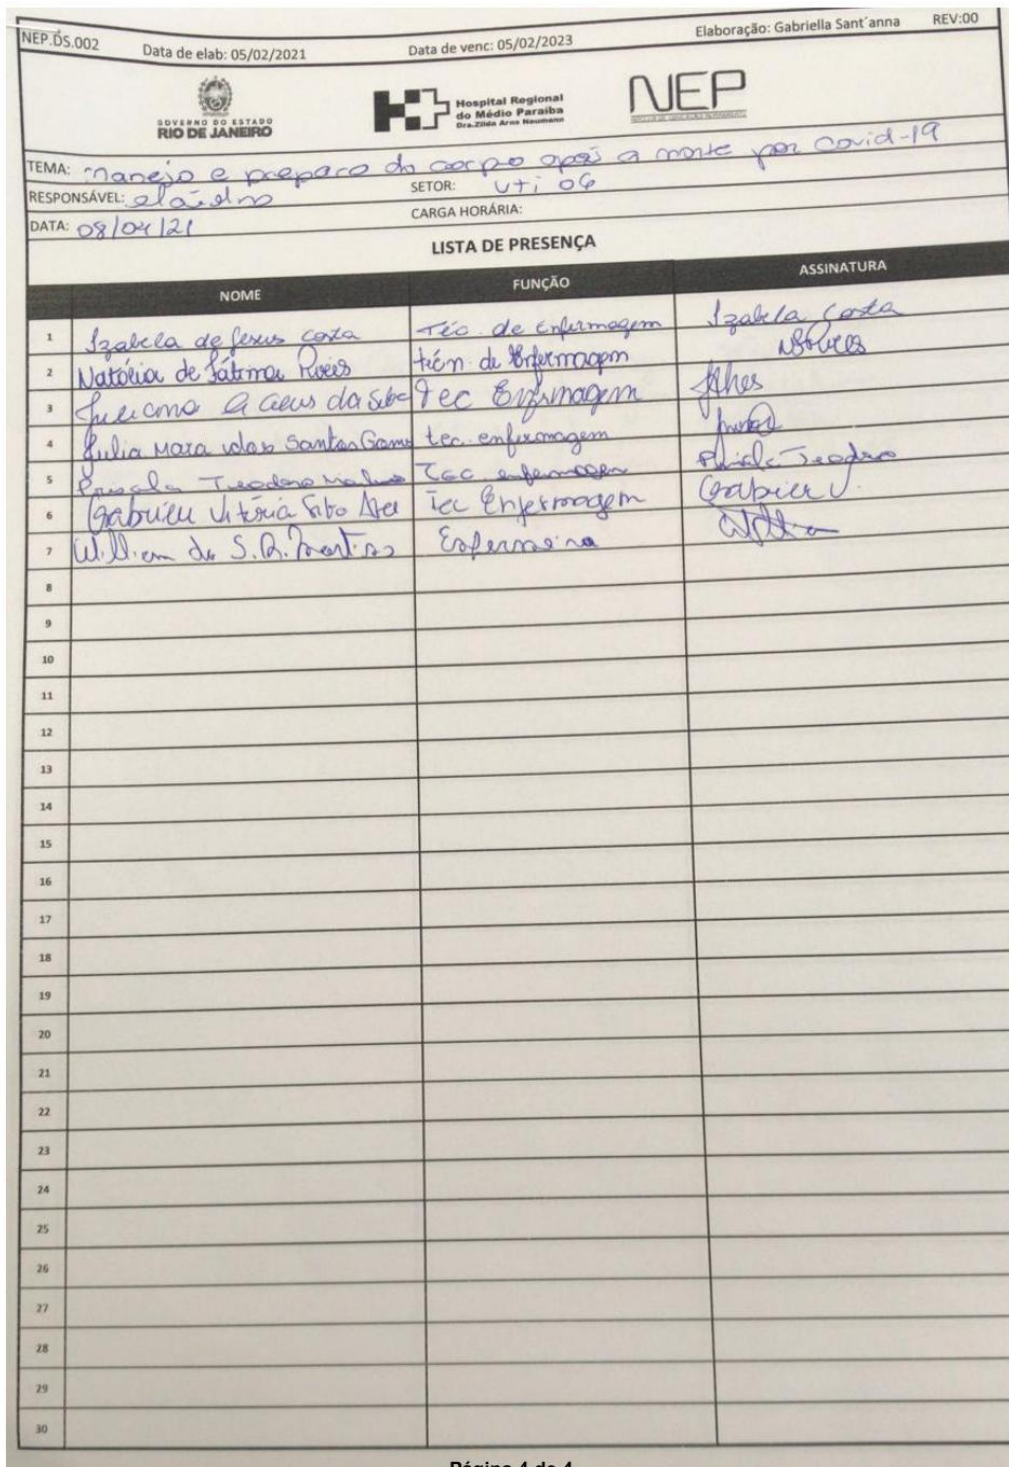 NEP.DS.002 Data de elab: 05/02/2021 Data de venc: 05/02/2023 Elaboração: Gabriella Sant´anna REV:00
GOVERNO DO ESTADO
RIO DE JANEIRO
Hospital Regional
do Médio Paraíba
Dra.Zilda Arns Neumann
NEP
TEMA: Manejo e preparo do corpo após a morte por Covid-19
RESPONSÁVEL: SETOR: UTI 06
DATA: 08/04/21 CARGA HORÁRIA:
LISTA DE PRESENÇA
NOME FUNÇÃO ASSINATURA
1 Izabela de Jesus Costa Téc. de Enfermagem Izabela Costa
2 Natália de Fátima técn. de Enfermagem
3 da Tec Enfermagem
4 Julia Mara dos Santos tec. enfermagem
5 Priscila Teodoro Tec enfermagem Priscila Teodoro
6 Vitória Tec Enfermagem
7 William de S. R. Martins Enfermeiro
8
9
10
11
12
13
14
15
16
17
18
19
20
21
22
23
24
25
26
27
28
29
30
Página 4 de 4